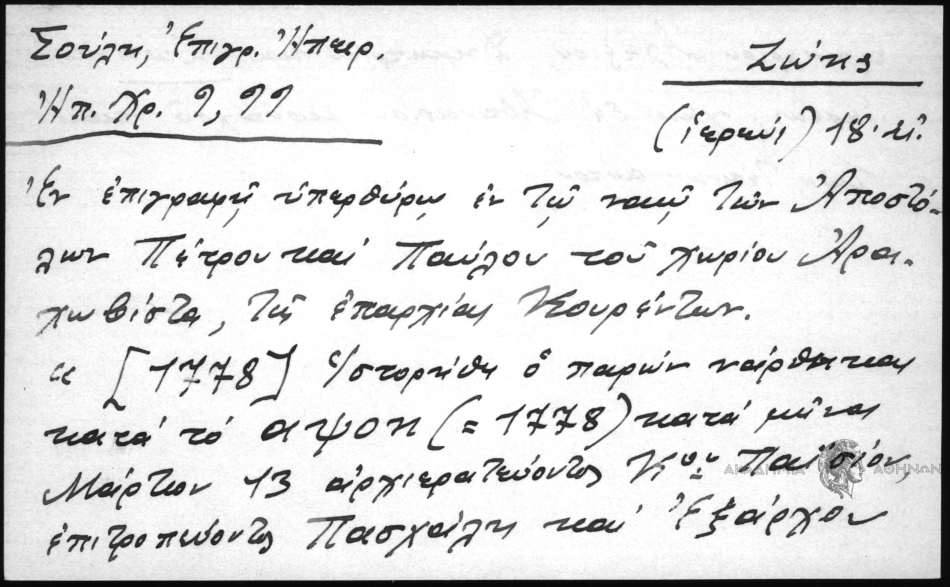 Σούλη, Ἐπιγρ. Ἠπειρ.
Ζώης
Ἠπ. Χρ. 9, 99
(ἱερεύς) 18. αἰ.
Ἐν ἐπιγραφῇ ὑπερθύρῳ ἐν τῷ ναῷ τῶν Ἀποστό-
λων Πέτρου καί Παύλου τοῦ χωρίου Ἀρα-
χωβίστα, τῆς ἐπαρχίας Κουρέντων.
« [1778] Ἱστορήθη ὁ παρών νάρθηκας
κατά τό αψοη (= 1778) κατά μῆνα
Μάρτιον 13 ἀρχιερατεύοντος Κου Παϊσίου,
ἐπιτροπεύοντος Πασχάλη καί Ἐξάρχου
ΑΚΑΔΗΜΙΑ ΑΘΗΝΩΝ